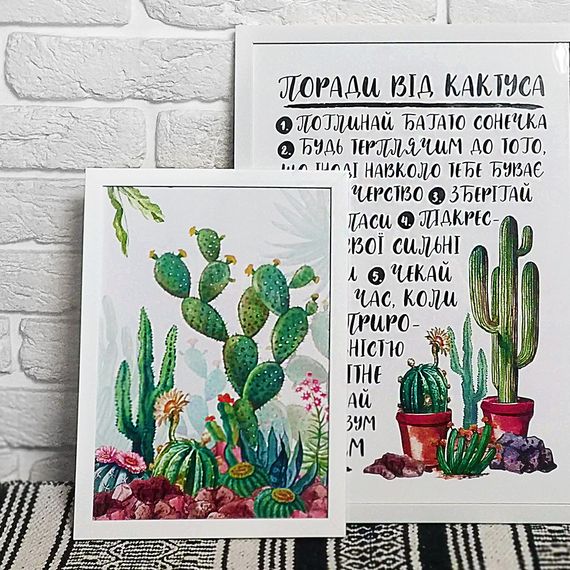 ПОРАДИ ВІД КАКТУСА
1. ПОГЛИНАЙ БАГАТО СОНЕЧКА
2. БУДЬ ТЕРПЛЯЧИМ ДО ТОГО,
ЩО ІНОДІ НАВКОЛО ТЕБЕ БУВАЄ
ЧЕРСТВО 3. ЗБЕРІГАЙ
ПАСИ 4. ПІДКРЕС-
СВОЇ СИЛЬНІ
И 5. ЧЕКАЙ
ЧАС, КОЛИ
ПРИРО-
НІСТЮ
ІТНЕ
АЙ
ЗУМ
М